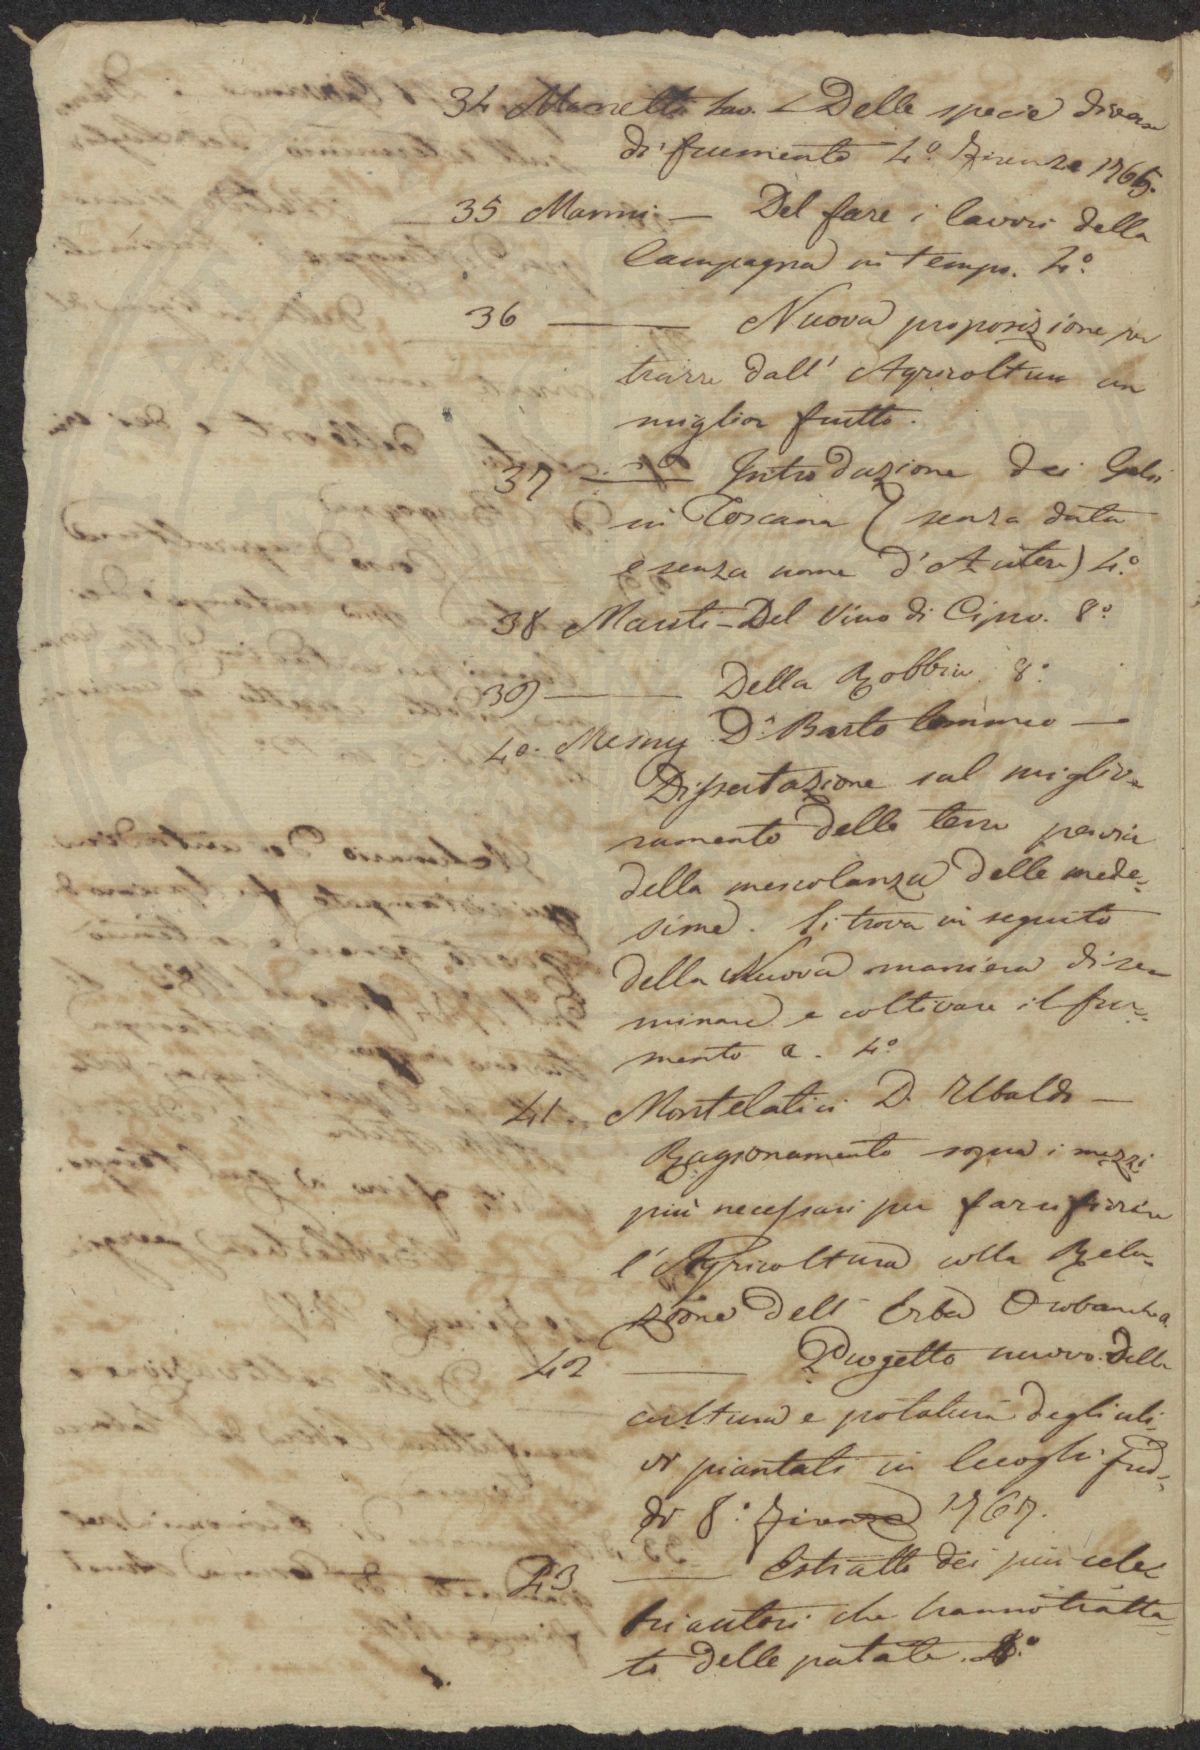 34 Manetti Sav. – Delle specie diverse
di frumento 4.° Firenze 1765.
35 Manni – Del fare i lavori della
Campagna in tempo. 4.°
36 — Nuova proposizione per
trarre dall' Agricoltura un
miglior frutto.
37 — Introduzione dei Gelsi
in Toscana (senza data
e senza nome d'Autore) 4.°
38 Mariti – Del Vino di Cipro. 8.°
39 — Della Robbia 8.°
40. Mesny D.r Bartolommeo —
Dissertazione sul miglio-
ramento delle terre per via
della mescolanza delle mede-
sime. Si trova in seguito
della Nuova maniera di se-
minare e coltivare il fru-
mento a. 4.°
41. Montelatici D. Ubaldo —
Ragionamento sopra i mezzi
più necessari per far rifiorire
l'Agricoltura colla Rela-
zione dell' Erba Orobanche.
42 — Progetto nuovo della
cultura e potatura degli uli-
vi piantati in luoghi fred-
di 8.° Firenze 1767.
43 — Estratto dei più cele-
bri autori che hanno tratta-
to delle patate. 8.°